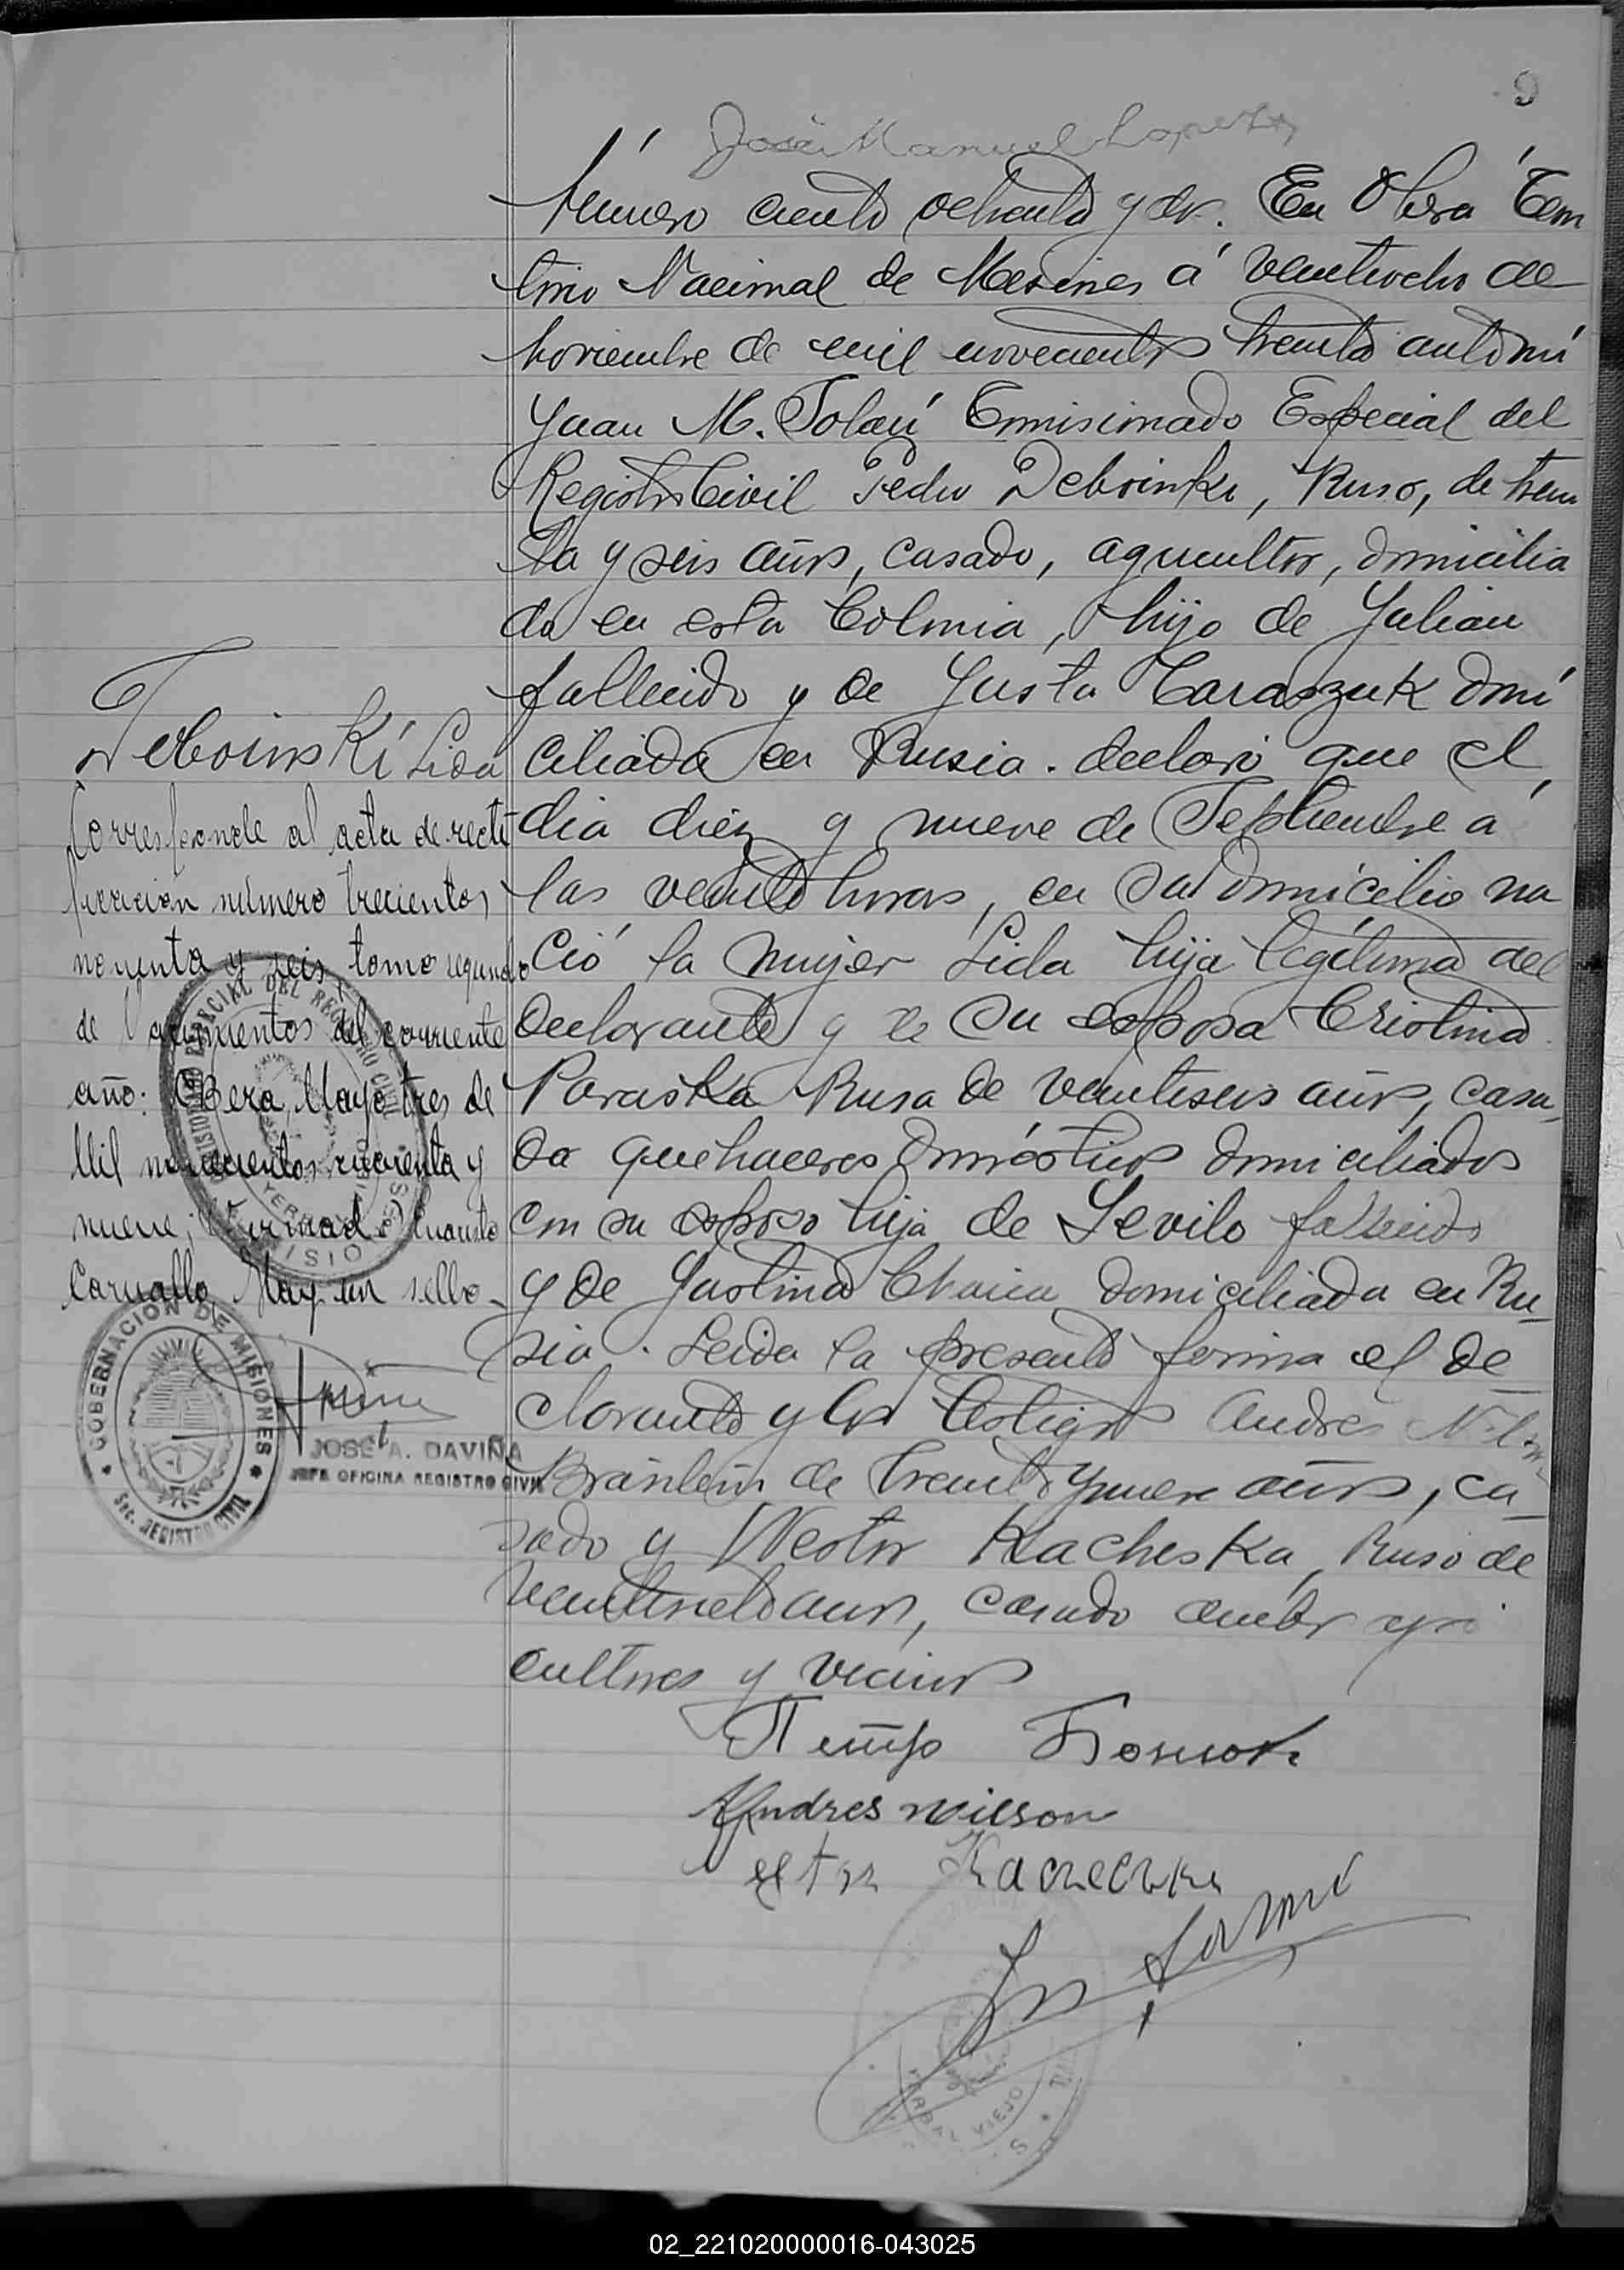 9
José Manuel Lopez
Número ciento ochenta y dos. En Oberá Terri
torio Nacional de Misiones á veintiocho de
Noviembre de mil novecientos treinta ante mí
Juan M. Comisionado Especial del
Registro Civil Pedro Deboinki, Ruso, de trein
ta y seis años, casado, agricultor, domicilia
do en esta Colonia, hijo de Julian
fallecido y de Justa Taraszuk domi
ciliada en Rusia. declaró que el
día diez y nueve de Septiembre á
las veinte horas, en su domicilio na
ció la mujer Lida hija legítima del
declarante y de su esposa Cristina
Paraska Rusa de veintiseis años, casa
da quehaceres domésticos domiciliados
con su esposo hija de Sevilo fallecido
y de Justina domiciliada en Ru
sia. Leida la presente firma el de
clarante y los testigos Andrés
Brasilero de treinta y nueve años, ca
sado y Nestor Kacheska, Ruso de
veintisiete años, casado ambos agri
cultores y vecinos
Deboinski Lida
Corresponde al acta de recti
ficación número trecientos
noventa y seis, tomo segundo
de Nacimientos del corriente
año: Oberá, Mayo tres de
Mil novecientos cuarenta y
nueve; (Firmado)
Carvallo Hay un sello
GOBERNACION DE MISIONES
Sec. REGISTRO CIVIL
JOSE A. DAVIÑA
JEFE OFICINA REGISTRO CIVIL
Петро
Andres wilson
YERBAL VIEJO
02_221020000016-043025